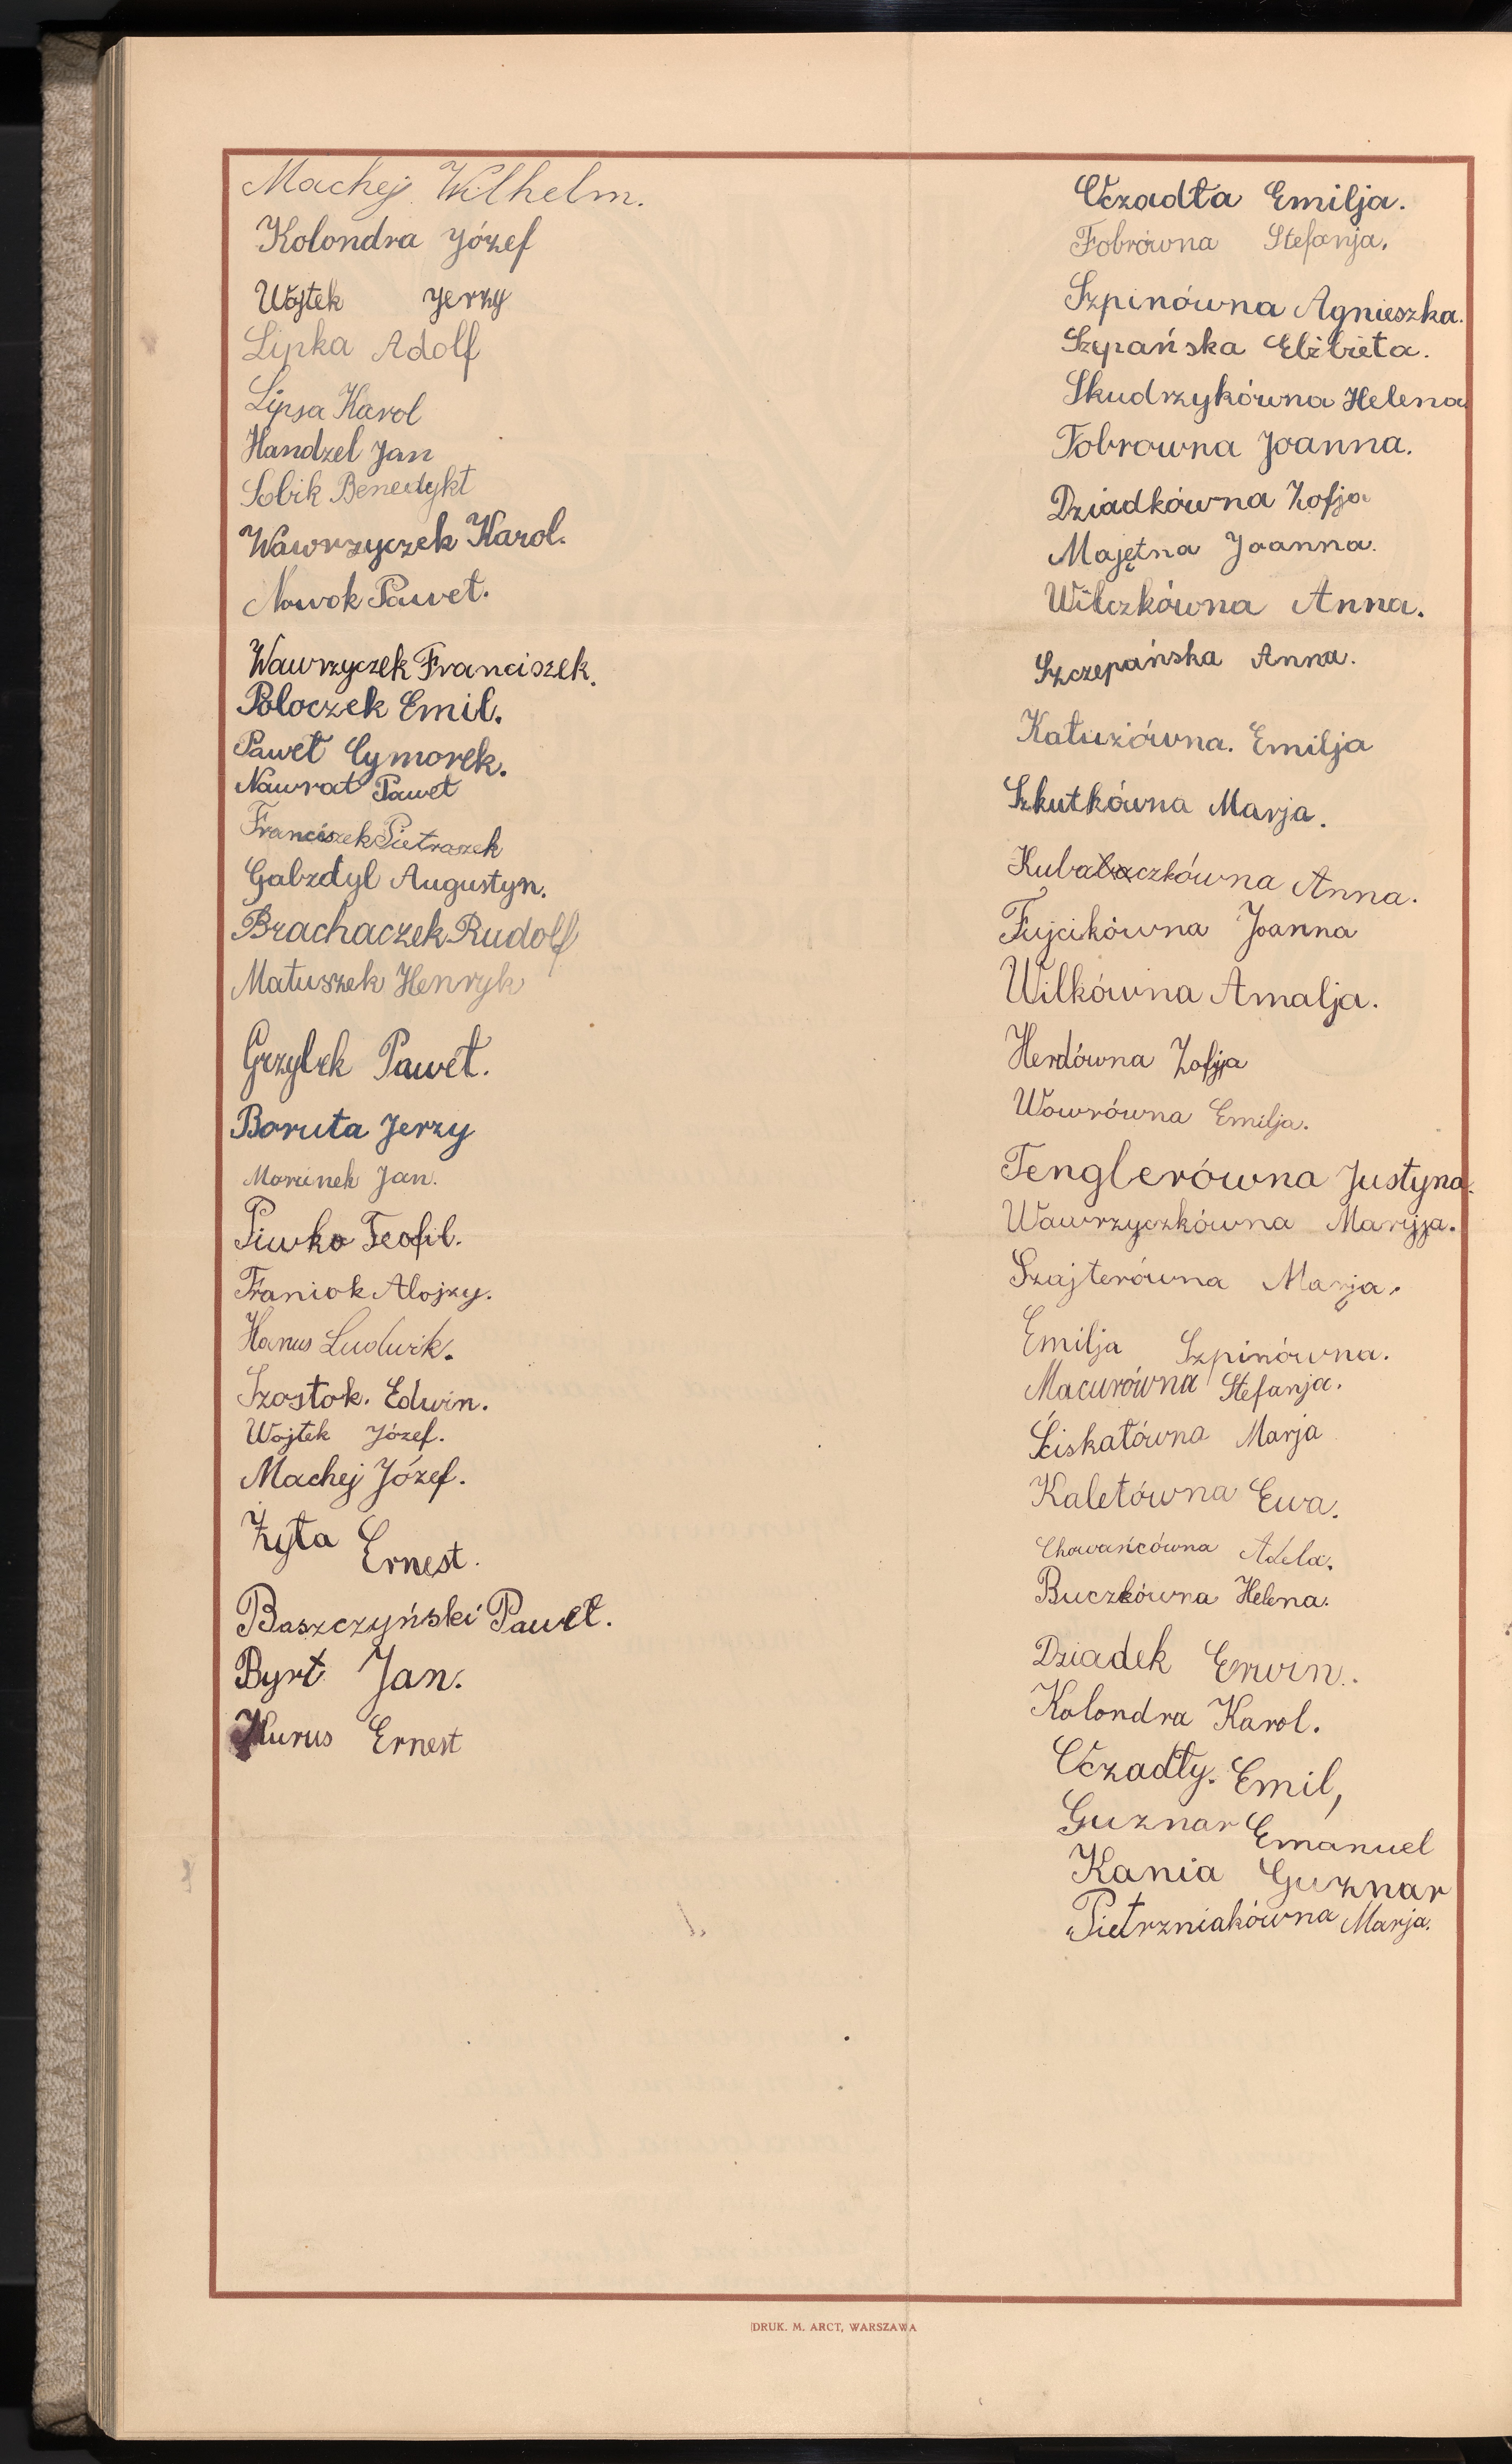 Machej Wilhelm.
Kolondra Józef
Wojtek Jerzy
Lipka Adolf
Lipsa Karol
Handzel Jan
Sobik Benedykt
Wawrzyczek Karol.
Nowok Paweł.
Wawrzyczek Franciszek.
Poloczek Emil.
Paweł Cymorek.
Nawrat Paweł
Franciszek Pietraszek
Gabzdyl Augustyn.
Brachaczek Rudolf
Matuszek Henryk
Grzybek Paweł.
Boruta Jerzy
Morcinek Jan.
Piwko Teofil.
Franiok Alojzy.
Hanus Ludwik.
Szostok. Edwin.
Wojtek Józef.
Machej Józef.
Żyła Ernest.
Baszczyński Paweł.
Byrt Jan.
Kurus Ernest
Uczadła Emilja.
Fobrówna Stefanja.
Szpinówna Agnieszka.
Szypańska Elżbieta.
Skudrzykówna Helena
Fobrowna Joanna.
Dziadkówna Zofja
Majętna Joanna.
Wilczkówna Anna.
Szczepańska Anna.
Kałuziówna. Emilja
Szkutkówna Marja.
Kubalaczkówna Anna.
Fujcikówna Joanna
Wilkówna Amalja.
Herdówna Zofja
Wowrówna Emilja.
Tenglerówna Justyna.
Wawrzyczkówna Maryja.
Szajterówna Marja.
Emilja Szpinówna.
Macurówna Stefanja.
Ściskałówna Marja
Kaletówna Ewa.
Chowańcówna Adela.
Buczkówna Helena.
Dziadek Erwin.
Kolondra Karol.
Uczadły. Emil,
Guznar Emanuel
Kania Guznar
Pietrzniakówna Marja.
DRUK. M. ARCT, WARSZAWA